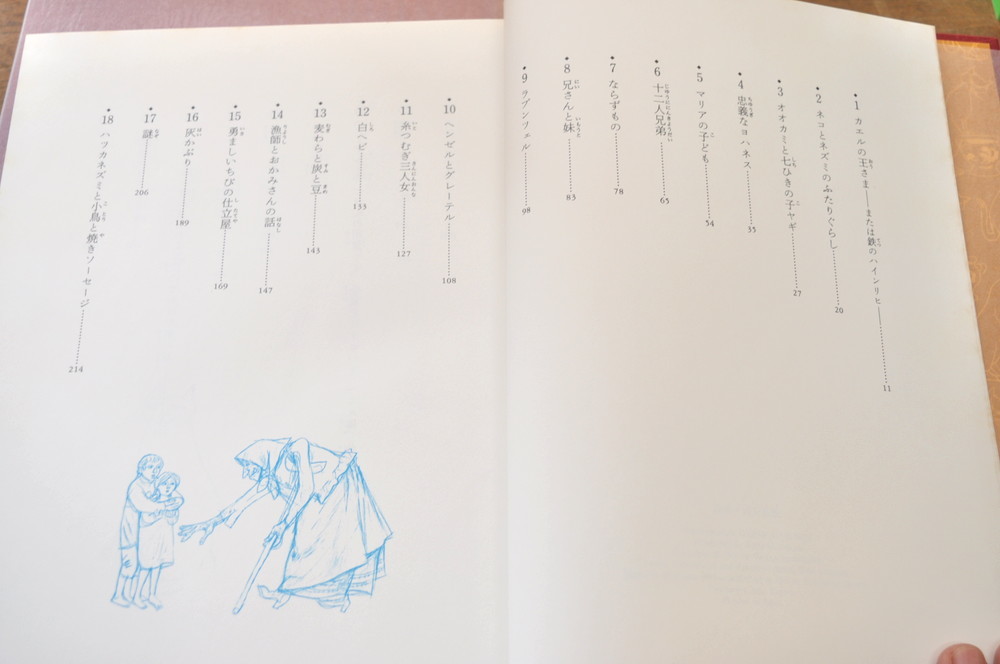 1 カエルの王さま――または鉄のハインリヒ――……11
2 ネコとネズミのふたりぐらし……20
3 オオカミと七ひきの子ヤギ……27
4 忠義なヨハネス……35
5 マリアの子ども……54
6 十二人兄弟……65
7 ならずもの……78
8 兄さんと妹……83
9 ラプンツェル……98
10 ヘンゼルとグレーテル……108
11 糸つむぎ三人女……127
12 白ヘビ……133
13 麦わらと炭と豆……143
14 漁師とおかみさんの話……147
15 勇ましいちびの仕立屋……169
16 灰かぶり……189
17 謎……206
18 ハツカネズミと小鳥と焼きソーセージ……214